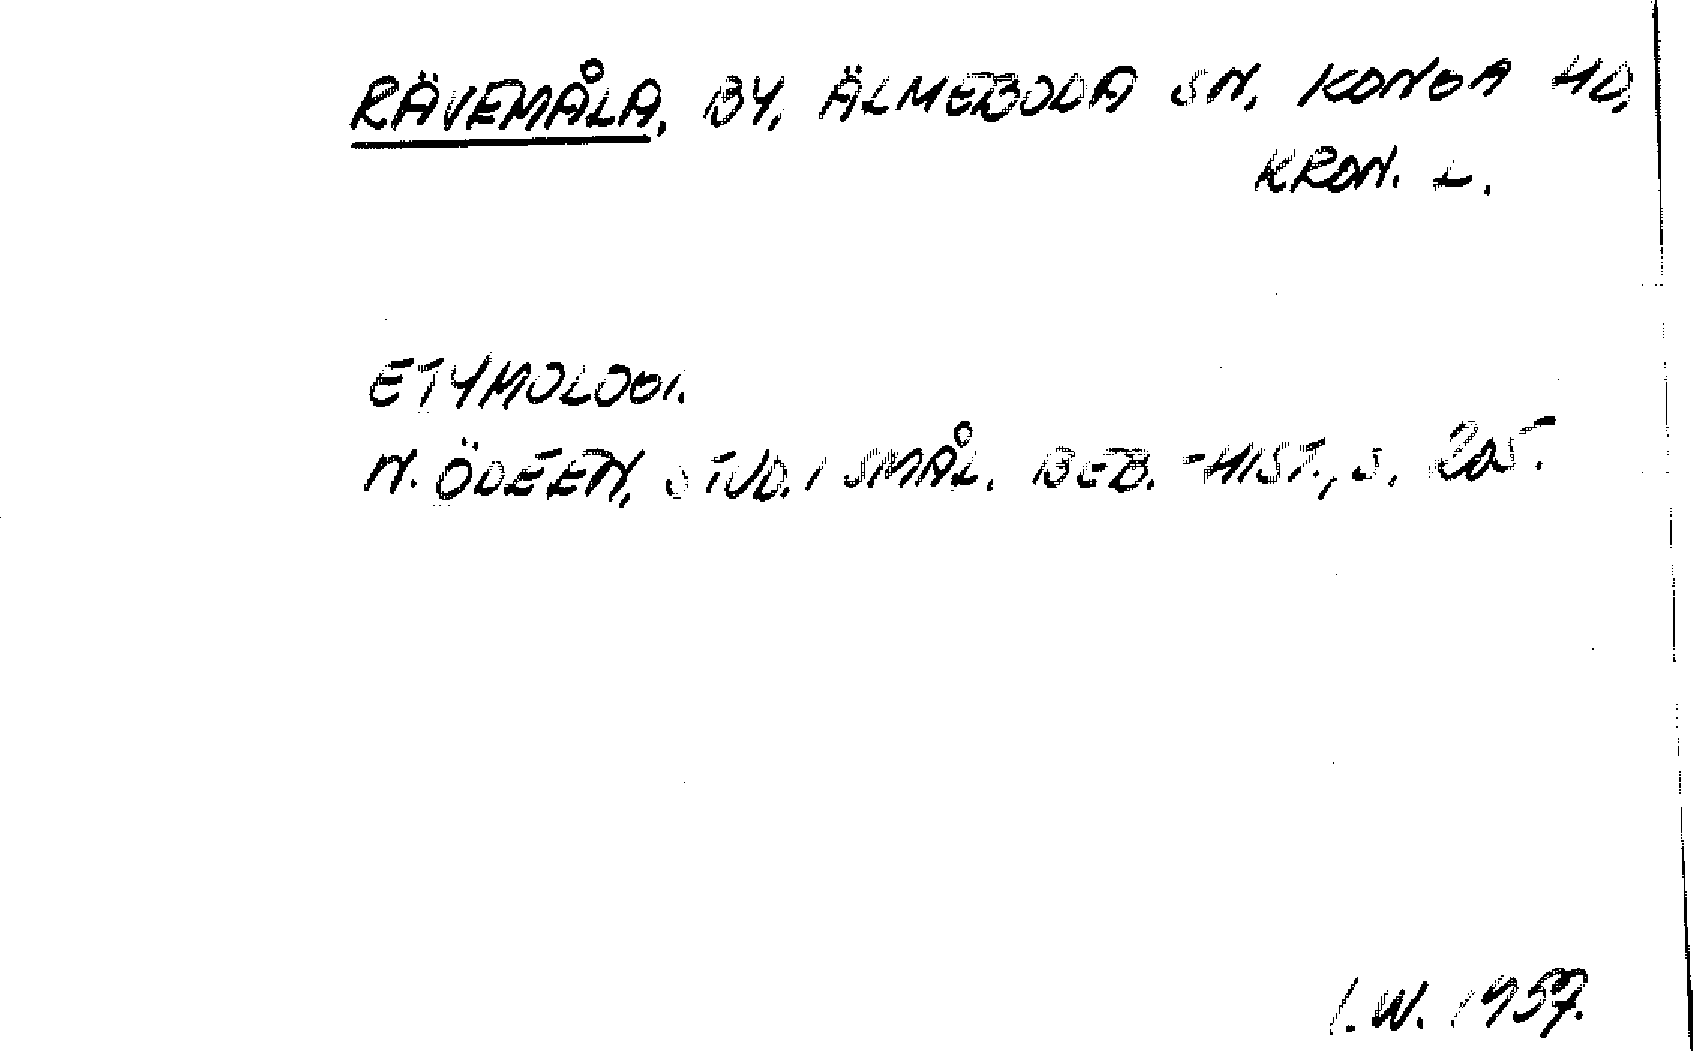 RÄVEMÅLA, BY, ÄLMEBODA SN, KONGA HD,
KRON. L.
ETYMOLOGI.
N. ÖDEEN, STUD. I SMÅL. BEB.-HIST., S. 205.
I.W. 1937.